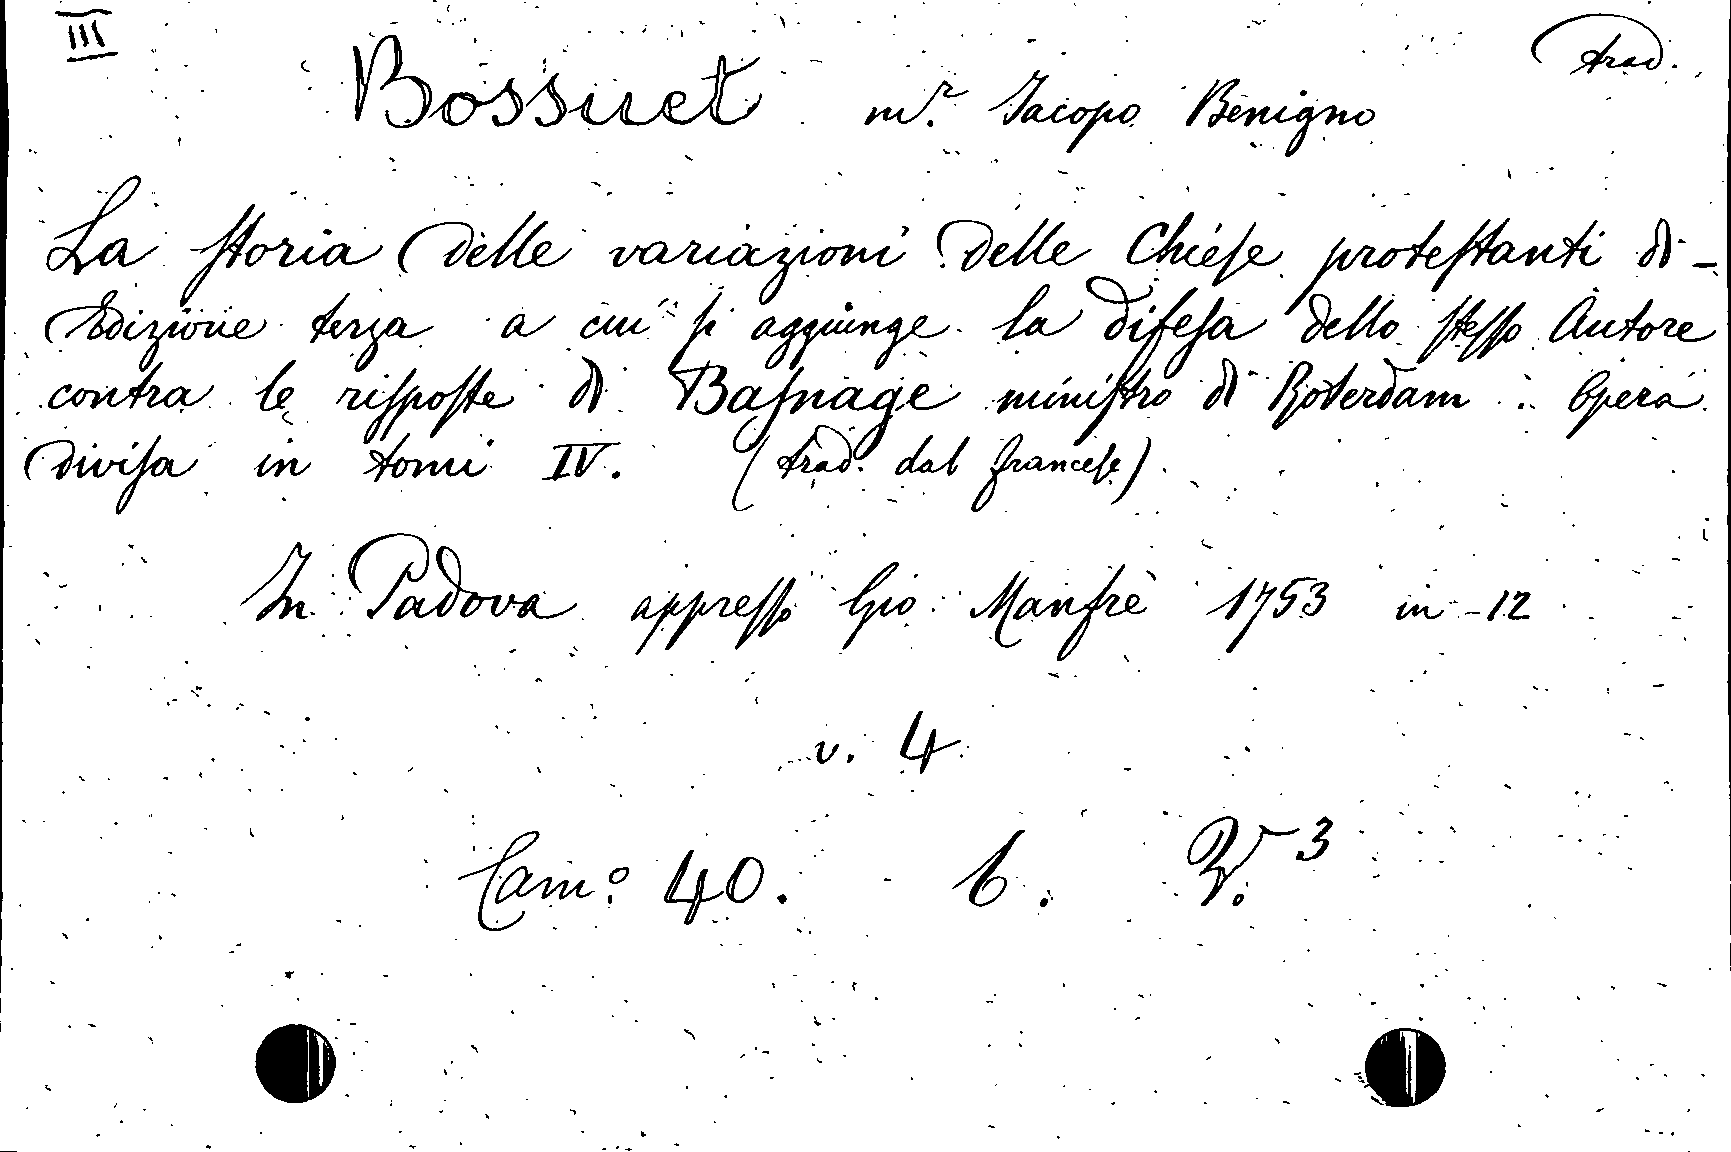 III
trad.
Bossuet m.r Jacopo Benigno
La storia delle variazioni delle Chiese protestanti di -
Edizione terza a cui si aggiunge la difesa dello stesso Autore
contra le risposte di Basnage ministro di Roterdam : Opera
divisa in tomi IV. (trad. dal francese)
In Padova appresso Gio. Manfrè 1753 in-12
v. 4
Cam.º 40. b. V.3